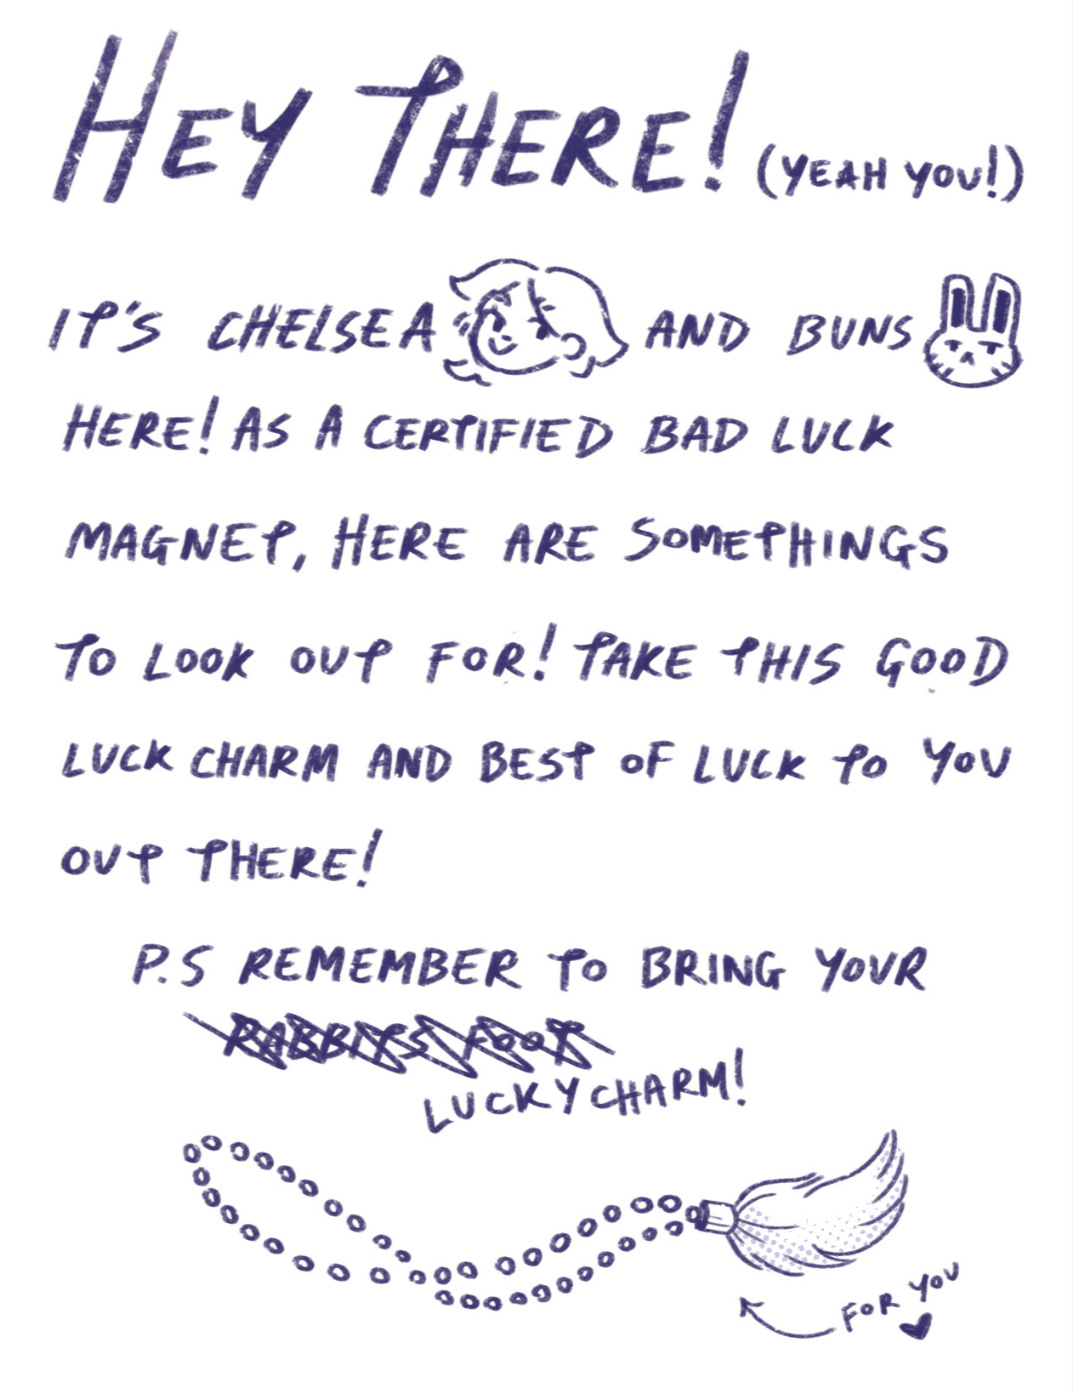 HEY THERE! (YEAH YOU!)
IT'S CHELSEA AND BUNS
HERE! AS A CERTIFIED BAD LUCK
MAGNET, HERE ARE SOMETHINGS
TO LOOK OUT FOR! TAKE THIS GOOD
LUCK CHARM AND BEST OF LUCK TO YOU
OUT THERE!
P.S REMEMBER TO BRING YOUR
RABBITS FOOT
LUCKY CHARM!
FOR YOU